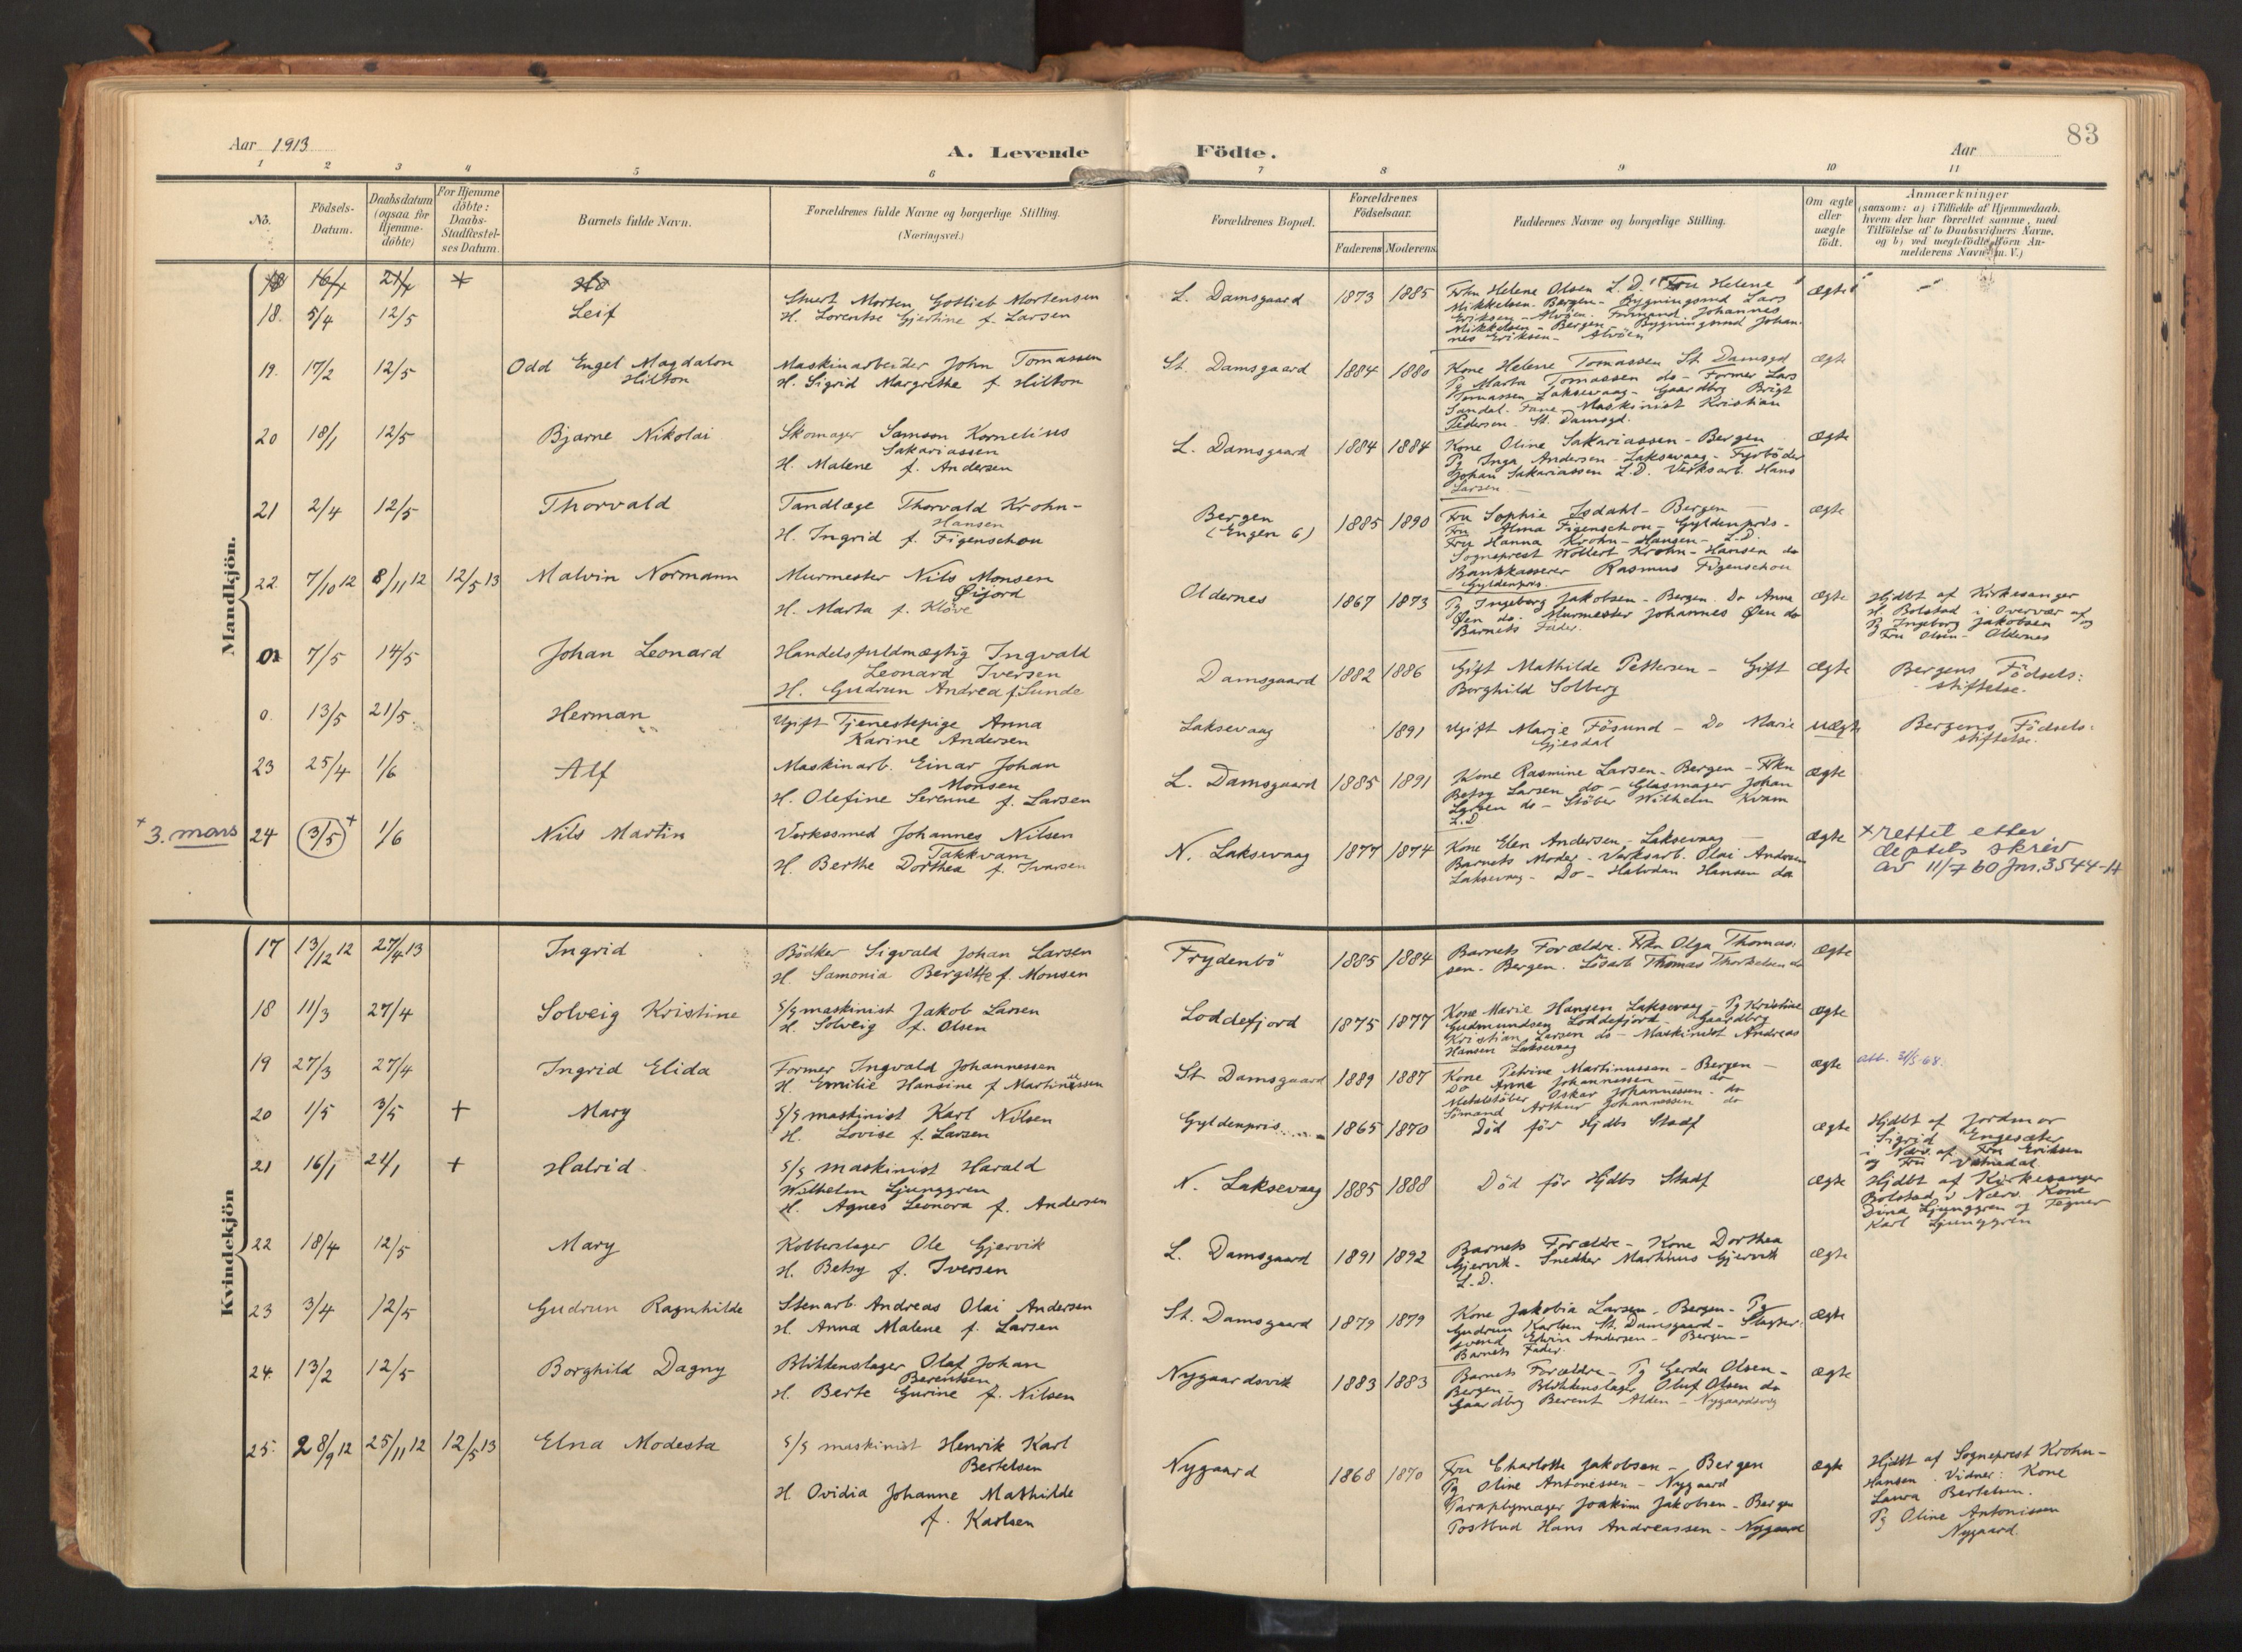 83
Aar 1913
A. Levende Födte.
Aar
1 2 3 4 5 6 7 8 9 10 11
No.
Födsels-Datum.
Daabsdatum (ogsaa for Hjemme-döbte)
For Hjemme döbte: Daabs-Stadfæstel-ses Datum.
Barnets fulde Navn.
Forældrenes fulde Navne og borgerlige Stilling.
(Næringsvei.)
Forældrenes Bopæl.
Forældrenes Födselsaar.
Faderens Moderens
Faddernes Navne og borgerlige Stilling.
Om ægte eller uægte födt.
Anmærkninger
(saasom: a) i Tilfælde af Hjemmedaab, hvem der har forrettet samme, med Tilföielse af to Daabsvidners Navne, og b) ved uegtefödte Börn An-melderens Navn m. V.)
Mandkjön.
18 16/4 21/4
18. 5/4 12/5 Leif
Stuert Morten Gottlieb Mortensen
H. Lorentse Gjertine f. Larsen
L. Damsgaard 1873 1885
Frkn Helene Olsen L.D. Fru Helene
Mikkelsen. Bergen - Bygningsmd Lars
Eriksen - Alvøen. Formand Johannes
Mikkelsen - Bergen - Bygningsmd Johan-
nes Eriksen - Alvöen
Ægte
19. 17/2 12/5 Odd Engel Magdalon
Hilton
Maskinarbeider John Tomassen
H. Sigrid Margrethe f. Hilton
St. Damsgaard 1884 1880
Kone Helene Tomassen St. Damsgd
Pg Marta Tomassen do - Former Lars
Tomassen Laksevaag - Gaardbrg Brigt
Sandal. Fane - Maskinist Kristian
Pedersen - St. Damsgd.
Ægte
20 18/1 12/5 Bjarne Nikolai
Skomager Samson Kornelius
Sakariassen
H. Malene f. Andersen
L. Damsgaard 1884 1884
Kone Oline Sakariassen - Bergen
Pg Inga Andersen - Laksevaag - Fyrböder
Johan Sakariassen L.D. Verksarb. Hans
Larsen
Ægte
21 2/4 12/5 Thorvald
Tandlæge Thorvald Krohn-
Hansen
H. Ingrid f. Figenschou
Bergen
(Engen 6) 1885 1890
Fru Sophie Isdahl - Bergen
Fru Alma Figenschou - Gyldenpris -
Fru Hanna Krohn-Hansen - L.D.
Sogneprest Wollert Krohn-Hansen do
Bankkasserer Rasmus Figenschou
Gyldenpris.
Ægte
22. 7/10 12 8/11 12 12/5 13 Malvin Normann
Murmester Nils Monsen
Øijord
H. Marta f. Klöve
Oldernes 1867 1873
Pg Ingeborg Jakobsen - Bergen. Do Anna
Øen do. Murmester Johannes Øen do
Barnets Fader.
Ægte
Hjdbt af Kirkesanger
H. Bolstad i Overvær af
Pg Ingeborg Jakobsen og
Fru Olsen - Oldernes
0 7/5 14/5 Johan Leonard
Handelsfuldmægtig Ingvald
Leonard Iversen
H. Gudrun Andrea f. Sunde
Damsgaard 1882 1886
Gift Mathilde Pettersen - Gift
Borghild Solberg
Ægte
Bergens Födsels:
stiftelse.
0. 13/5 21/5. Herman
Ugift Tjenestepige Anna
Karine Andersen
Laksevaag 1891
Ugift Marie Fösund - Do Marie
Gjesdal
uægte
Bergens Födsels:
stiftelse.
23 25/4 1/6 Alf
Maskinarb. Einar Johan
Monsen
H. Olefine Serenne f. Larsen
L. Damsgaard 1885 1891
Kone Rasmine Larsen - Bergen - Frkn
Betsy Larsen do - Glasmager Johan
Larsen do - Stöber Wilhelm Kvam
L.D
Ægte
+ 3. mars 24 3/5 + 1/6 Nils Martin
Verkssmed Johannes Nilsen
Takkvam
H. Berthe Dorthea f. Ivarsen
N. Laksevaag 1877 1874
Kone Elen Andersen, Laksevaag
Barnets Moder - Verksarb. Olai Andersen
Laksevaag - Do - Halvdan Hansen do
Ægte
x rettet etter
deptets skriv
av 11/7 60 Jnr. 3544-H
Kvindekjön
17 13/12 12 27/4 13 Ingrid
Bödker Sigvald Johan Larsen
H. Samonia Bergitte f. Monsen
Frydenbö 1885 1884
Barnets Forældre. Frkn Olga Thomas-
sen - Bergen. Lösarb Thomas Thorkelsen do
Ægte
18 11/3 27/4 Solveig Kristine
S/S maskinist Jakob Larsen
H. Solveig f. Olsen
Loddefjord 1875 1877
Kone Marie Hansen Laksevaag - Pg Kristine
Gudmundsen Loddefjord - Gaardbrg
Kristian Larsen do - Maskinist Andreas
Hansen Laksevaag
Ægte
19 27/3 27/4 Ingrid Elida
Former Ingvald Johannessen
H. Emilie Hansine f. Martinussen
St Damsgaard 1889 1887
Kone Petrine Martinussen - Bergen -
Do Anne Johannessen - do
Metalstöber Oskar Johannessen - do
Sömand Arthur Johannessen do
Ægte
att. 31/5-68.
20 1/5 3/5 + Mary
S/S maskinist Karl Nilsen
H. Lovise f. Larsen
Gyldenpris 1865 1870
Död för Hjdbs Stadf
Ægte
Hjdbt af Jordmor
Sigrid Engesæter
i Nærv. af Fru Eriksen
og Fru Vatnedal
21 16/1 21/1 + Halrid
S/S maskinist Harald
Wilhelm Ljunggren
H. Agnes Leonora f. Andersen
N. Laksevaag 1885 1888
Död för Hjdbs Stadf
Ægte
Hjdbt af Kirkesanger
Bolstad i Nærv. Kone
Dina Ljunggren og Tegner
Karl Ljunggren
22 18/4 12/5 Mary
Kobberslager Ole Gjervik
H. Betsy f. Iversen
L. Damsgaard 1891 1892
Barnets Forældre - Kone Dorthea
Gjervik - Snedker Martinus Gjervik
L.D.
Ægte
23 3/4 12/5 Gudrun Ragnhilde
Stenarb. Andreas Olai Andersen
H. Anna Malene f. Larsen
St. Damsgaard 1879 1879
Kone Jakobia Larsen - Bergen - Pg
Gudrun Karlsen St. Damsgaard - Slagter-
svend Edvin Andersen - Bergen -
Barnets Fader.
Ægte
24. 13/2 12/5 Borghild Dagny
Blikkenslager Olaf Johan
Berentsen
H. Berte Gurine f. Nilsen
Nygaardsvik 1883 1883
Barnets Forældre - Pg Gerda Olsen -
Bergen - Blikkenslager Oluf Olsen do
Gaardbrg Berent Alden - Nygaardsvig
Ægte
25. 28/9 12 25/11 12 12/5 13 Elna Modesta
S/S maskinist Henrik Karl
Bertelsen
H. Ovidia Johanne Mathilde
f. Karlsen
Nygaard 1868 1870
Fru Charlotte Jakobsen - Bergen
Pg Oline Antonessen - Nygaard
Paraplymager Joakim Jakobsen - Bergen
Postbud Hans Andreassen - Nygaard
Ægte
Hjdbt af Sogneprest Krohn-
Hansen. Vidner: Kone
Laura Bertelsen.
Pg Oline Antonissen
Nygaard.